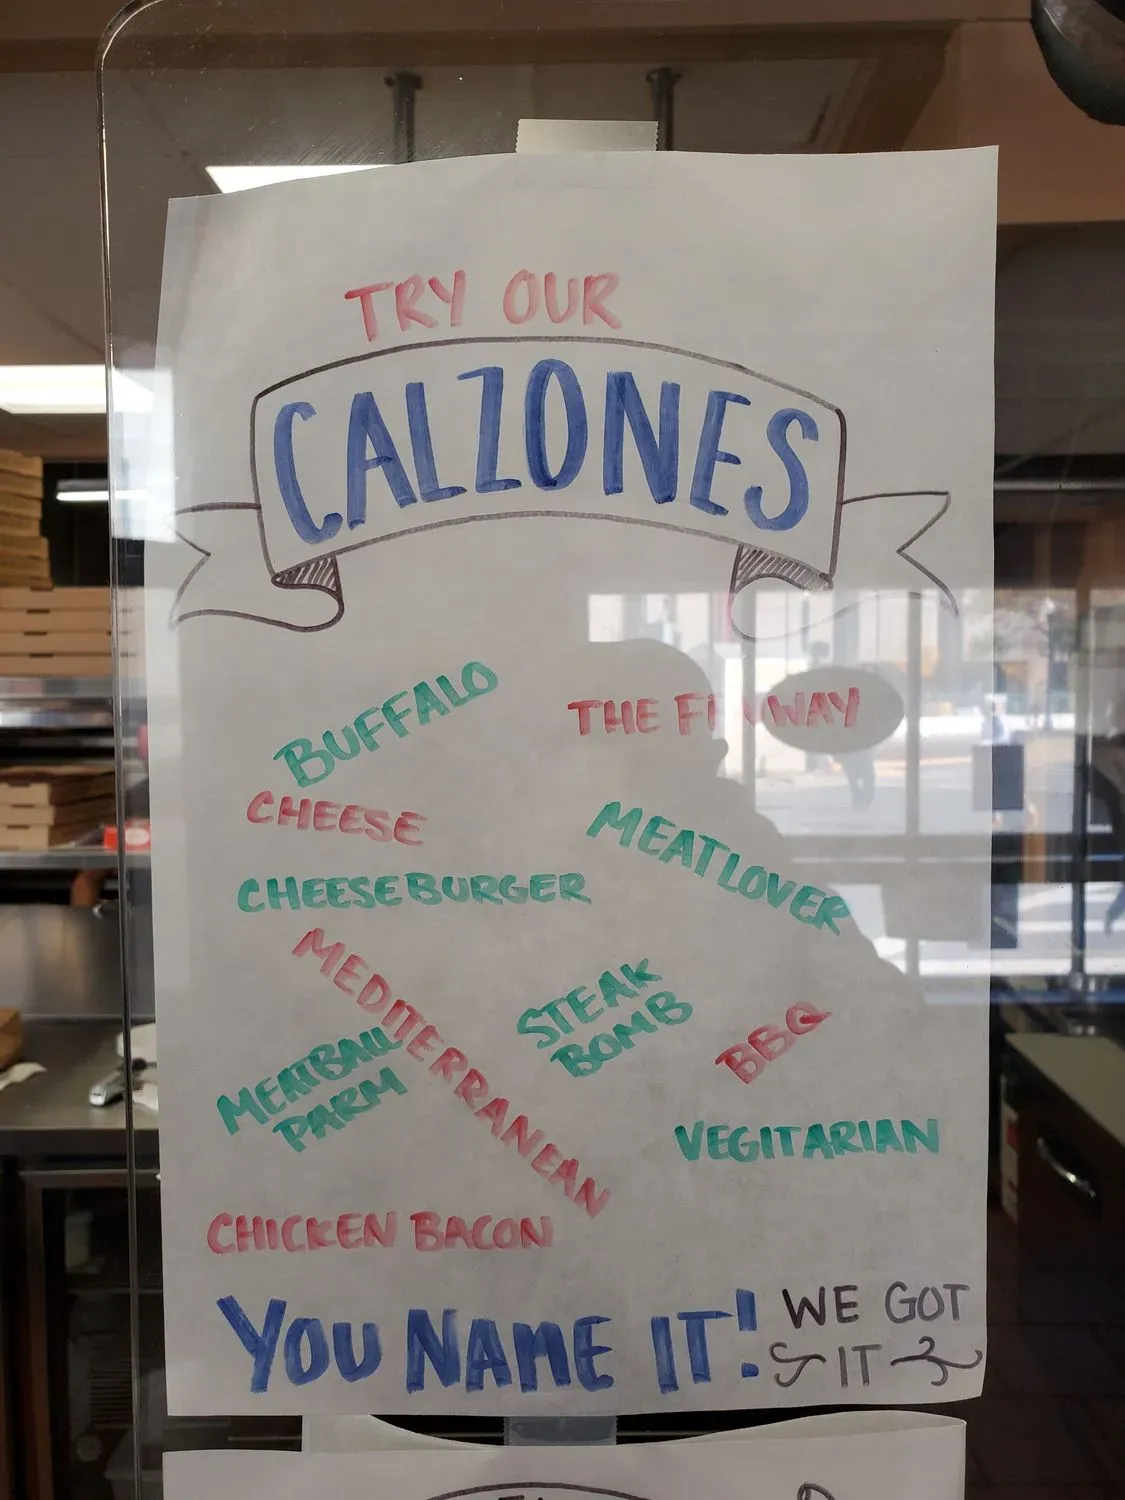 TRY OUR
CALZONES
BUFFALO
THE
CHEESE
MEATLOVER
CHEESEBURGER
MEDITERRANEAN
STEAK
BOMB
BBQ
MEATBALL
PARM
VEGITARIAN
CHICKEN BACON
YOU NAME IT!
WE GOT
IT